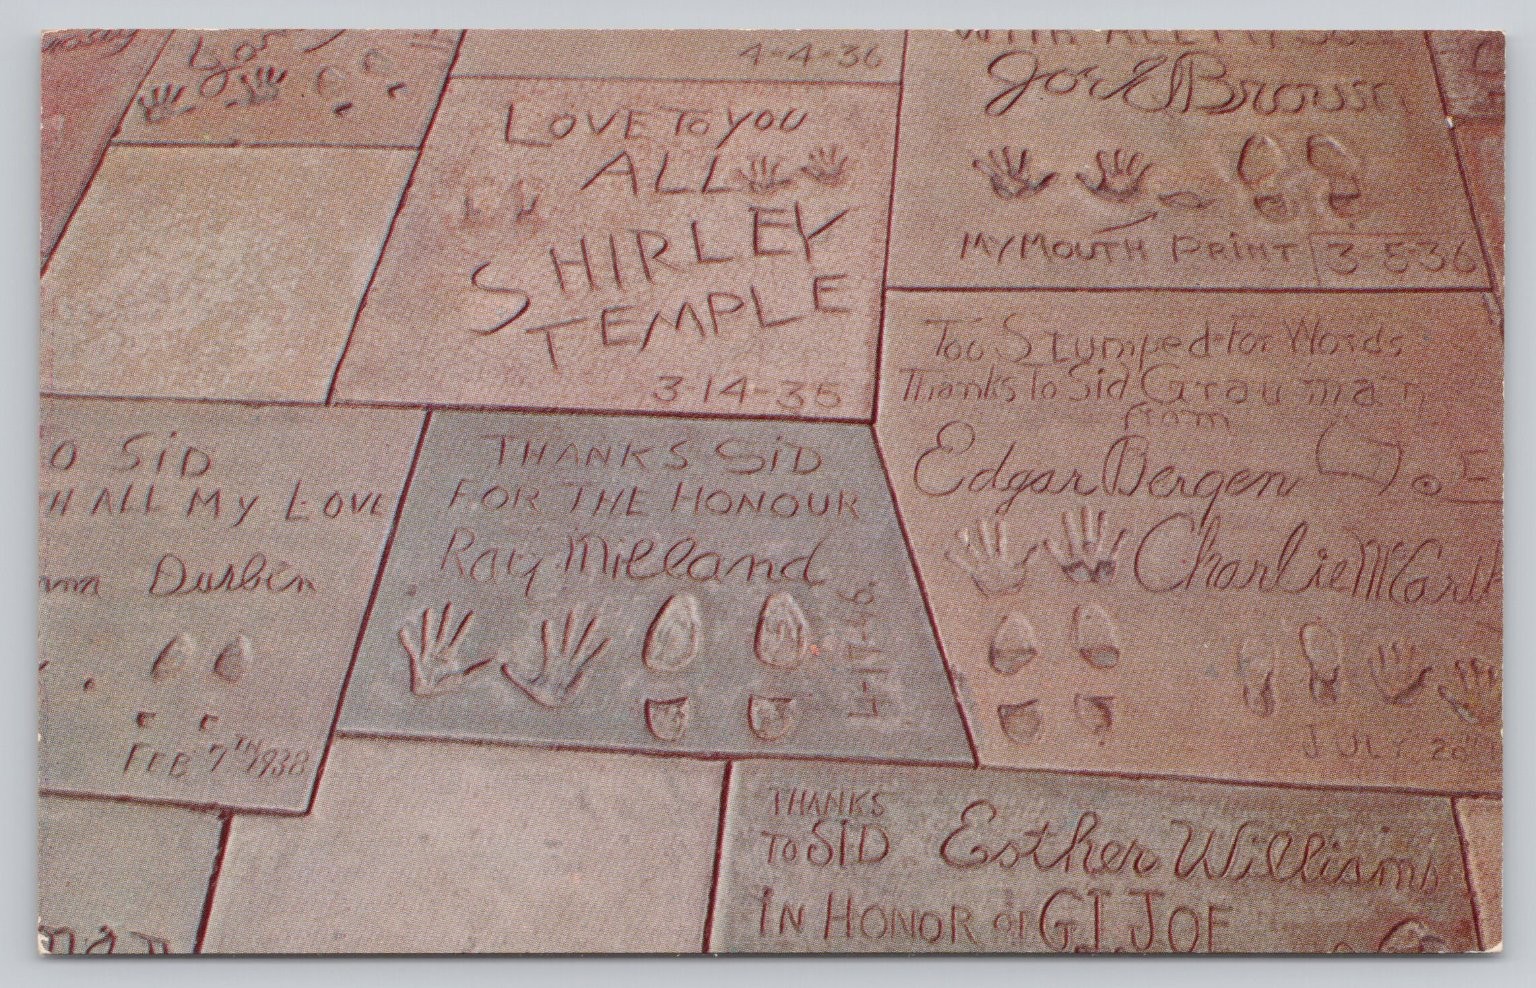 4-4-36
LOVE TO YOU
ALL
SHIRLEY
TEMPLE
3-14-35
Joe E Brown
MY MOUTH PRINT 3-5-36
Too Stumped For Words
Thanks To Sid Grauman
From
Edgar Bergen
Charlie McCart
JULY 20
O SiD
H ALL My LOVE
nna Durbin
FEB 7TH 1938
THANKS SiD
FOR THE HONOUR
Ray Milland
THANKS
To SID Esther Williams
IN HONOR OF G.I. JOE